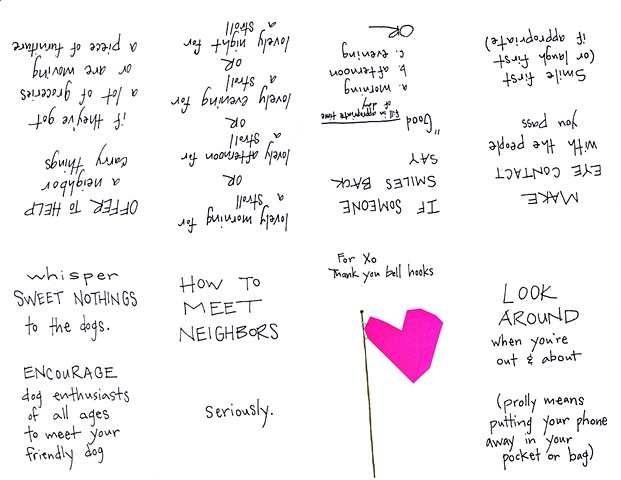 HOW TO
MEET
NEIGHBORS
Seriously.
For Xo
Thank you bell hooks
LOOK
AROUND
when you're
out & about
(prolly means
putting your phone
away in your
pocket or bag)
MAKE
EYE CONTACT
with the people
you pass
Smile first
(or laugh first
if appropriate)
IF SOMEONE
SMILES BACK
SAY
"Good fill in appropriate time
of day
a. morning
b. afternoon
c. evening
OR
lovely morning for
a stroll
OR
lovely afternoon for
a stroll
OR
lovely evening for
a stroll
OR
lovely night for
a stroll
OFFER TO HELP
a neighbor
carry things
if they've got
a lot of groceries
or are moving
a piece of furniture
whisper
SWEET NOTHINGS
to the dogs.
ENCOURAGE
dog enthusiasts
of all ages
to meet your
friendly dog